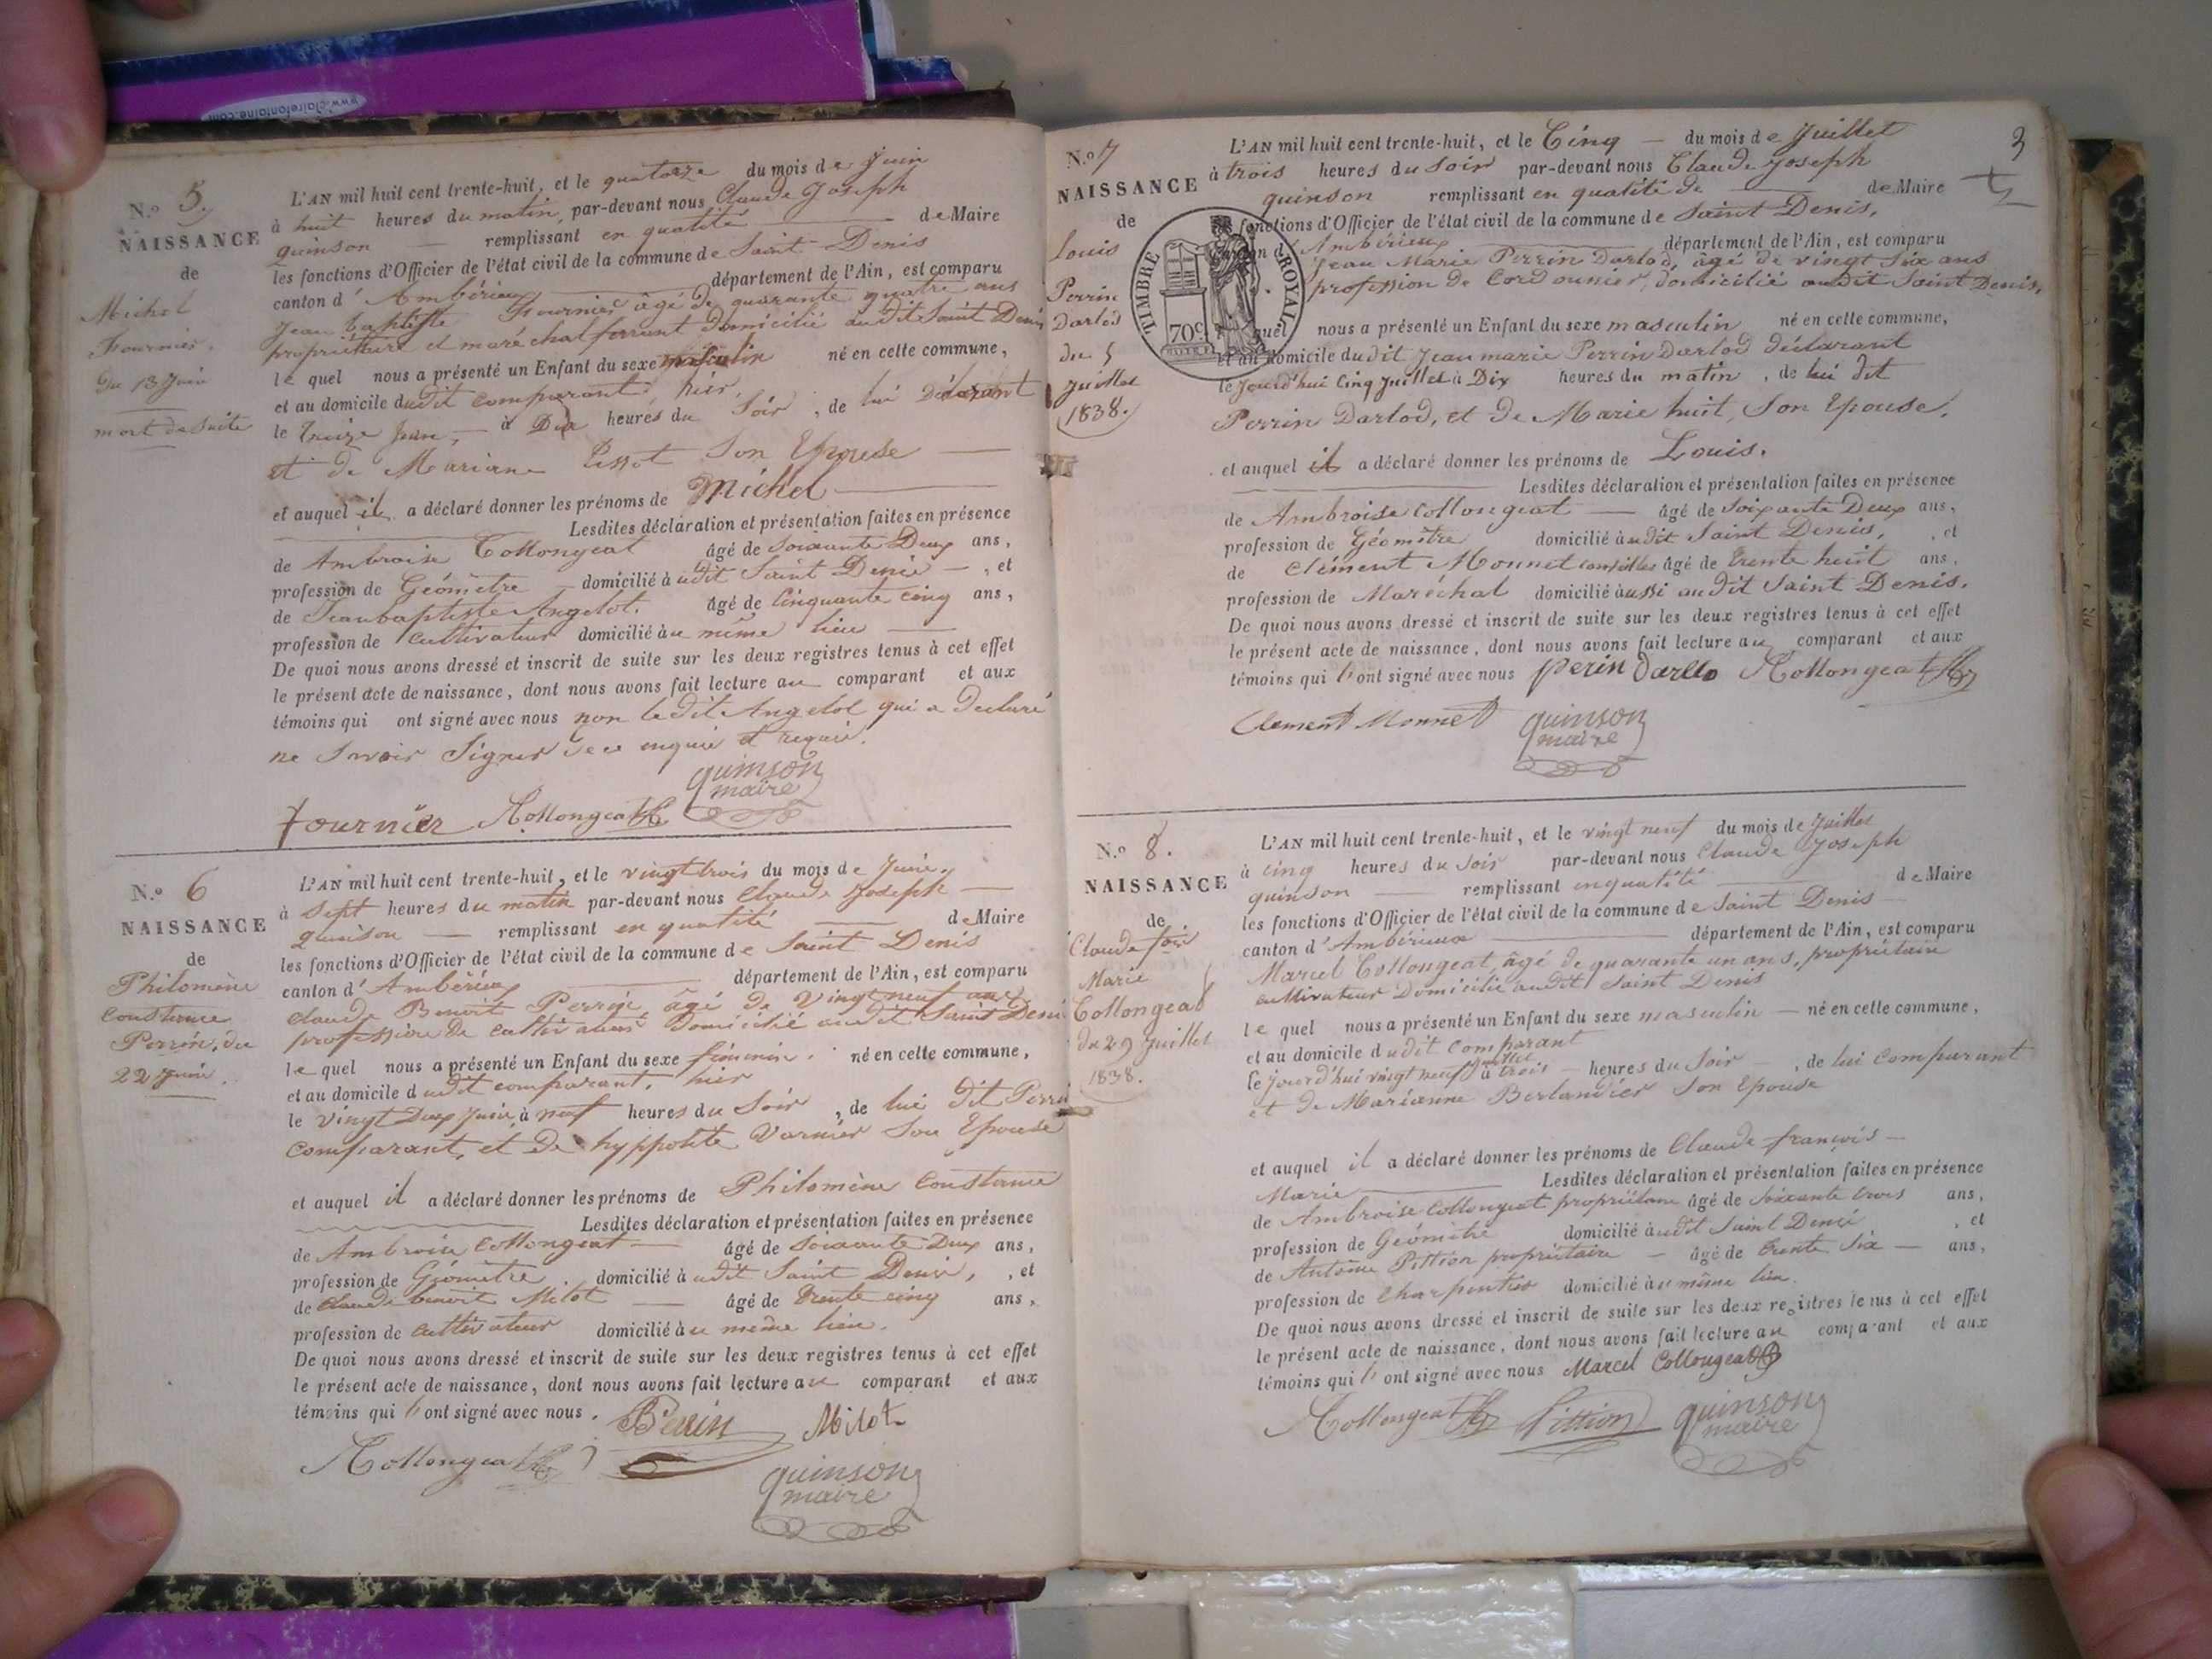 www.clairefontaine.com
N.º 5.
NAISSANCE
de
Michel
Fournier.
du 13 Juin
mort de suite
L'AN mil huit cent trente-huit, et le quatorze du mois de Juin
à huit heures du matin, par-devant nous Claude Joseph
quinson remplissant en qualité de Maire
les fonctions d'Officier de l'état civil de la commune de Saint Denis
canton d'Ambérieux département de l'Ain, est comparu
Jean baptiste Fournier âgé de quarante quatre ans
propriétaire et maréchal ferrant domicilié audit Saint Denis
lequel nous a présenté un Enfant du sexe masculin né en cette commune,
et au domicile dudit comparant, hier,
le treize Juin, à Dix heures du Soir, de lui déclarant
et de Mariane Son Epouse
et auquel il a déclaré donner les prénoms de Michel
Lesdites déclaration et présentation faites en présence
de Ambroise Collongeat âgé de Soixante Deux ans,
profession de Géomètre domicilié audit Saint Denis, et
de Jeanbaptiste Angelot. âgé de Cinquante cinq ans,
profession de Cultivateur domicilié au même lieu
De quoi nous avons dressé et inscrit de suite sur les deux registres tenus à cet effet
le présent acte de naissance, dont nous avons fait lecture au comparant et aux
témoins qui ont signé avec nous non ledit Angelot qui a declaré
ne Savoir Signer de ce enquis et requis.
quinson
maire
Fournier Collongeat
N.º 6
NAISSANCE
de
Philomène
Constance
Perrin, du
22 Juin.
L'AN mil huit cent trente-huit, et le vingt trois du mois de Juin.
à Sept heures du matin par-devant nous Claude Joseph
quinson remplissant en qualité de Maire
les fonctions d'Officier de l'état civil de la commune de Saint Denis
canton d'Ambérieux département de l'Ain, est comparu
Claude Benoit Perrin âgé de Vingt neuf ans
profession de cultivateur Domicilié audit Saint Denis
lequel nous a présenté un Enfant du sexe féminin. né en cette commune,
et au domicile dudit comparant, hier
le vingt Deux Juin, à neuf heures du Soir, de lui dit Perrin
Comparant, et De hyppolite Varnier Son Epouse
et auquel il a déclaré donner les prénoms de Philomène Constance
Lesdites déclaration et présentation faites en présence
de Ambroise Collongeat âgé de Soixante Deux ans,
profession de Géomètre domicilié audit Saint Denis, et
de Claude benoit Milot âgé de trente cinq ans,
profession de Cultivateur domicilié au même lieu.
De quoi nous avons dressé et inscrit de suite sur les deux registres tenus à cet effet
le présent acte de naissance, dont nous avons fait lecture au comparant et aux
témoins qui l'ont signé avec nous. Perrin Milot
Collongeat
quinson
maire
3
N.º 7
NAISSANCE
de
Louis
Perrin
Darlod
du 5
Juillet
1838.
TIMBRE ROYAL
70c
L'AN mil huit cent trente-huit, et le Cinq du mois de Juillet
à trois heures du Soir par-devant nous Claude Joseph
quinson remplissant en qualité de de Maire
fonctions d'Officier de l'état civil de la commune de Saint Denis,
canton d'Ambérieux département de l'Ain, est comparu
Jean Marie Perrin Darlod, âgé de vingt Six ans
profession de Cordounier, domicilié audit Saint Denis,
quel nous a présenté un Enfant du sexe masculin né en cette commune,
et au domicile dudit Jean marie Perrin Darlod déclarant
le Jourd'hui Cinq Juillet à Dix heures du matin, de lui dit
Perrin Darlod, et de Marie huit, Son Epouse,
et auquel il a déclaré donner les prénoms de Louis.
Lesdites déclaration et présentation faites en présence
de Ambroise Collongeat âgé de Soixante Deux ans,
profession de Géomètre domicilié audit Saint Denis, et
de Clément Monnet âgé de trente huit ans,
profession de Maréchal domicilié aussi audit Saint Denis.
De quoi nous avons dressé et inscrit de suite sur les deux registres tenus à cet effet
le présent acte de naissance, dont nous avons fait lecture au comparant et aux
témoins qui l'ont signé avec nous Perin Darllo Collongeat
Clement Monnet quinson
maire
N.º 8.
NAISSANCE
de
Claude
Marie
Collongeat
du 29 Juillet
1838.
L'AN mil huit cent trente-huit, et le vingt neuf du mois de Juillet
à cinq heures du Soir par-devant nous Claude Joseph
quinson remplissant en qualité de Maire
les fonctions d'Officier de l'état civil de la commune de Saint Denis
canton d'Ambérieux département de l'Ain, est comparu
Marcel Collongeat, âgé de quarante un ans, propriétaire
cultivateur Domicilié audit Saint Denis
lequel nous a présenté un Enfant du sexe masculin né en cette commune,
et au domicile dudit Comparant
le Jourd'hui vingt neuf Juillet à trois heures du Soir, de lui Comparant
et de Marianne Berlandier Son Epouse
et auquel il a déclaré donner les prénoms de Claude françois
Marie Lesdites déclaration et présentation faites en présence
de Ambroise Collongeat propriétaire âgé de Soixante trois ans,
profession de Géomètre domicilié audit Saint Denis, et
de Antoine Pittion propriétaire âgé de trente Six ans,
profession de Charpentier domicilié au même lieu.
De quoi nous avons dressé et inscrit de suite sur les deux registres tenus à cet effet
le présent acte de naissance, dont nous avons fait lecture au comparant et aux
témoins qui l'ont signé avec nous Marcel Collongeat
Collongeat Pittion quinson
maire